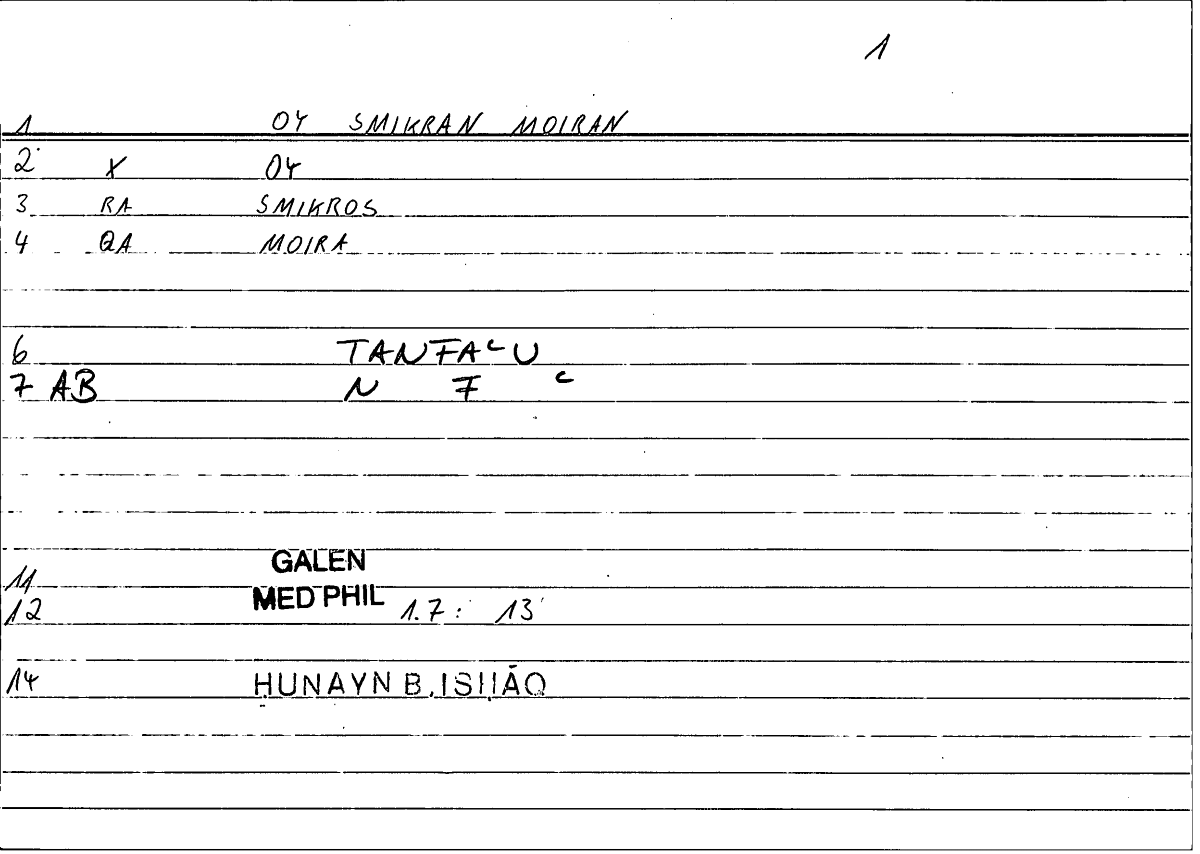 1
1 OY SMIKRAN MOIRAN
2 X OY
3 RA SMIKROS
4 QA MOIRA
6 TANFAʿU
7 AB N F ʿ
11 GALEN
12 MED PHIL 1.7: 13
14 ḤUNAYN B. ISḤĀQ